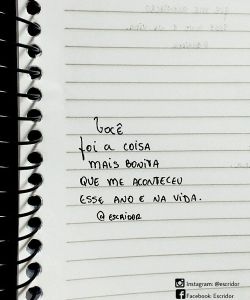 Você
foi a coisa
mais bonita
que me aconteceu
esse ano e na vida.
@escridor
Instagram: @escridor
Facebook: Escridor